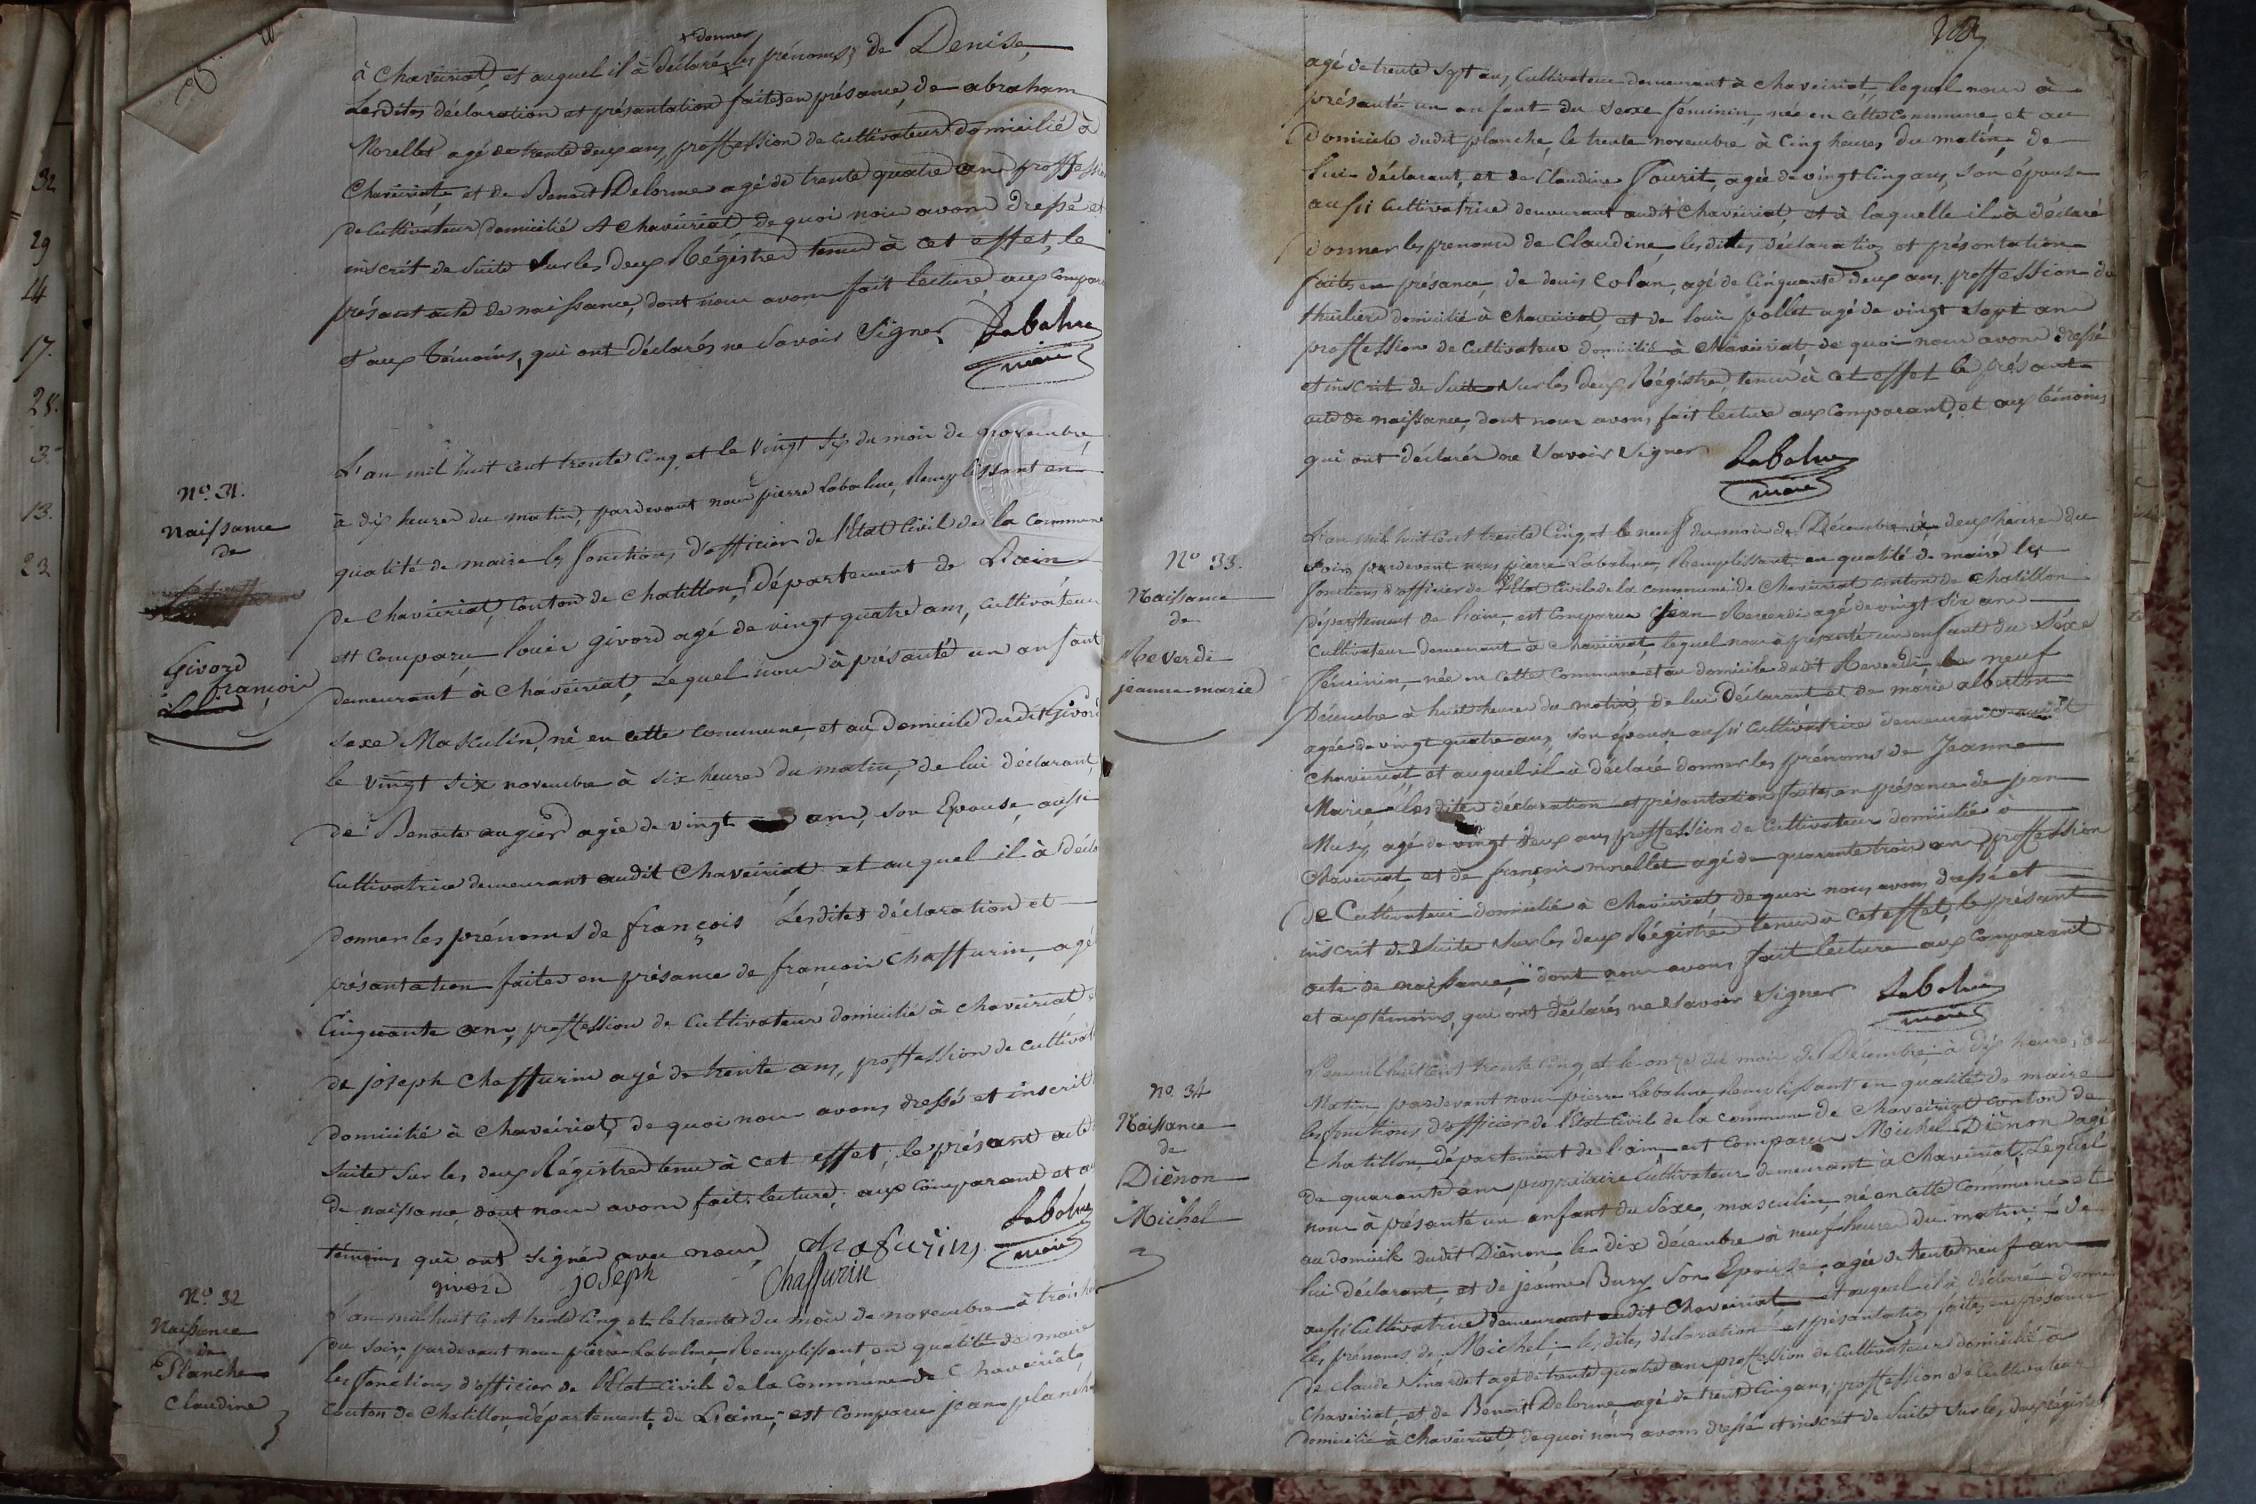 + donner
à Chaveiriat, et auquel il à déclaré + les prénoms de Denise,
Lesdites déclaration et présantation faites en présance, de abraham
Morellet agé de trente deux ans, proffession de cultivateur domicilié à
Chaveiriat, et de Benoit Delorme agé de trente quatre ans proffession
de Cultivateur domicilié A Chaveiriat de quoi nous avons dressé et
inscrit de suite sur les deux Régistres tenus à cet effet, le
présant acte de naissance, dont nous avons fait lecture aux compar
et aux témoins, qui ont déclarés ne savoir signer Labalme
maire
No. 31.
Naissance
de
Givord
françois
L'an mil huit cent trente cinq, et le vingt six du mois de novembre,
à dix heures du matin, pardevant nous pierre Labalme, Remplissant en
qualité de maire les fonctions d'officier de l'Etat Civil de la commune
de Chaveiriat, Canton de Chatillon, Département de L'ain
est comparu louis Givord agé de vingt quatre ans, cultivateur
demeurant à Chaveiriat, Lequel nous à présanté un anfant
sexe Masculin, né en cette commune, et au domicile dudit Givord
le vingt six novembre à six heures du matin, de lui déclarant,
de Benoite augier agée de vingt ans, son Epouse, aussi
Cultivatrice demeurant audit Chaveiriat et auquel il à décla
donner les prénoms de françois Lesdites déclaration et
présantation faites en présance de françois Chaffurin, agé
Cinquante ans, proffession de Cultivateur domicilié à Chaveiriat
de joseph Chaffurin agé de trente ans, proffession de cultivat
domicilié à Chaveiriat, de quoi nous avons dressés et inscrit
suite sur les deux Régistres tenus à cet effet, le présant acte
de naissance, dont nous avons fait lecture, aux comparant et au
témoins, qui ont signés avec nous, chafurin Labalme
maire
givord joseph Chaffurin
No. 32
Naissance
de
Planche
Claudine
L'an mil huit cent trente cinq et le trente du mois de novembre à trois heu
du soir, pardevant nous pierre Labalme, Remplissant en qualité de maire
les fonctions d'officier de l'Etat Civile de la Commune de Chaveiriat,
Canton de Chatillon, département, de L'ain, est comparu jean planche
agé de trente sept ans, Cultivateur demeurant à Chaveiriat, lequel nous à
présanté un anfant du sexe féminin, née en cette Commune et au
domicile dudit planche, le trente novembre à Cinq heures du matin, de
lui déclarant, et de Claudine Pourit, agée de vingt Cinq ans, son épouse
aussi Cultivatrice demeurant audit Chaveiriat, et à laquelle il à déclaré
donner les prenoms de Claudine, lesdites déclaration et présentation
faites en présance, de denis Colan, agé de Cinquante deux ans proffession de
thuilier domicilié à Chaveiriat, et de louis pollet agé de vingt sept ans
proffession de Cultivateur domicilié à Chaveiriat, de quoi nous avons dressé
et inscrit de suite sur les deux Régistres tenus à cet effet le présant
acte de naissance, dont nous avons fait lecture aux comparant, et aux témoins
qui ont déclarés ne savoir signer Labalme
maire
No 33.
Naissance
de
Reverdi
jeanne marie
L'an mil huit cent trente Cinq, et le neuf du mois de Décembre à deux heure du
soir, pardevant nous pierre Labalme, Remplissant en qualité de maire les
fonctions d'officier de l'Etat Civile de la commune de Chaveiriat canton de Chatillon
département de l'ain, est comparu Jean Reverdi agé de vingt six ans
Cultivateur demeurant à Chaveiriat lequel nous à présanté un enfant du séxe
féminin, née en cette Commune et au domicile dudit Reverdi, le neuf
Décembre à huit heures du matin, de lui Déclarant et de marie alberton
agée de vingt quatre ans, son épouse aussi Cultivatrice demeurant audit
Chaveiriat, et auquel il à déclaré donner les prénoms de Jeanne
Marie lesdites déclaration et présantation faites en présance de jean
Musy, agé de vingt deux ans proffession de Cultivateur domiciliée à
Chaveiriat, et de françois morellet agé de quarante trois ans proffession
de Cultivateur domicilié à Chaveiriat de quoi nous avons dressé et
inscrit de suite sur les deux Régistres tenus à Cet effet, le présant
acte de naissance, dont nous avons fait lecture aux comparant
et aux témoins, qui ont Déclarés ne savoir signer Labalme
maire
No. 34
Naissance
de
Diènon
Michel
L'an mil huit cent trente cinq, et le onze du mois de Décembre, à dix heures, du
Matin, pardevant nous pierre Labalme Remplissant en qualité de maire
les fonctions d'officier de l'Etat Civile de la commune de Chaveiriat canton de
Chatillon, département de l'ain, est comparu Michel Diènon agé
de quarante ans propriétaire Cultivateur demeurant à Chaveiriat, Lequel
nous à présanté un anfant du Sexe, masculin, né en cette Commune et
au domicile dudit Diènon, le dix décembre à neuf heures du matin, de
lui déclarant, et de jeanne Bury son Epouse, agée de trente neuf ans
aussi Cultivatrice demeurant audit Chaveiriat et auquel il à déclaré donner
les prénoms de Michel, lesdites déclaration et présantation faites en présance
de Claude Sinardet agé de trente quatre ans proffession de Cultivateur domicilié à
Chaveiriat, et de Benoit Delorme agé de trente Cinq ans, proffession de Cultivateur
domicilié à Chaveiriat, de quoi nous avons dressé et inscrit de suite sur les deux régistres
32
29
24
17.
28.
3.
13.
23